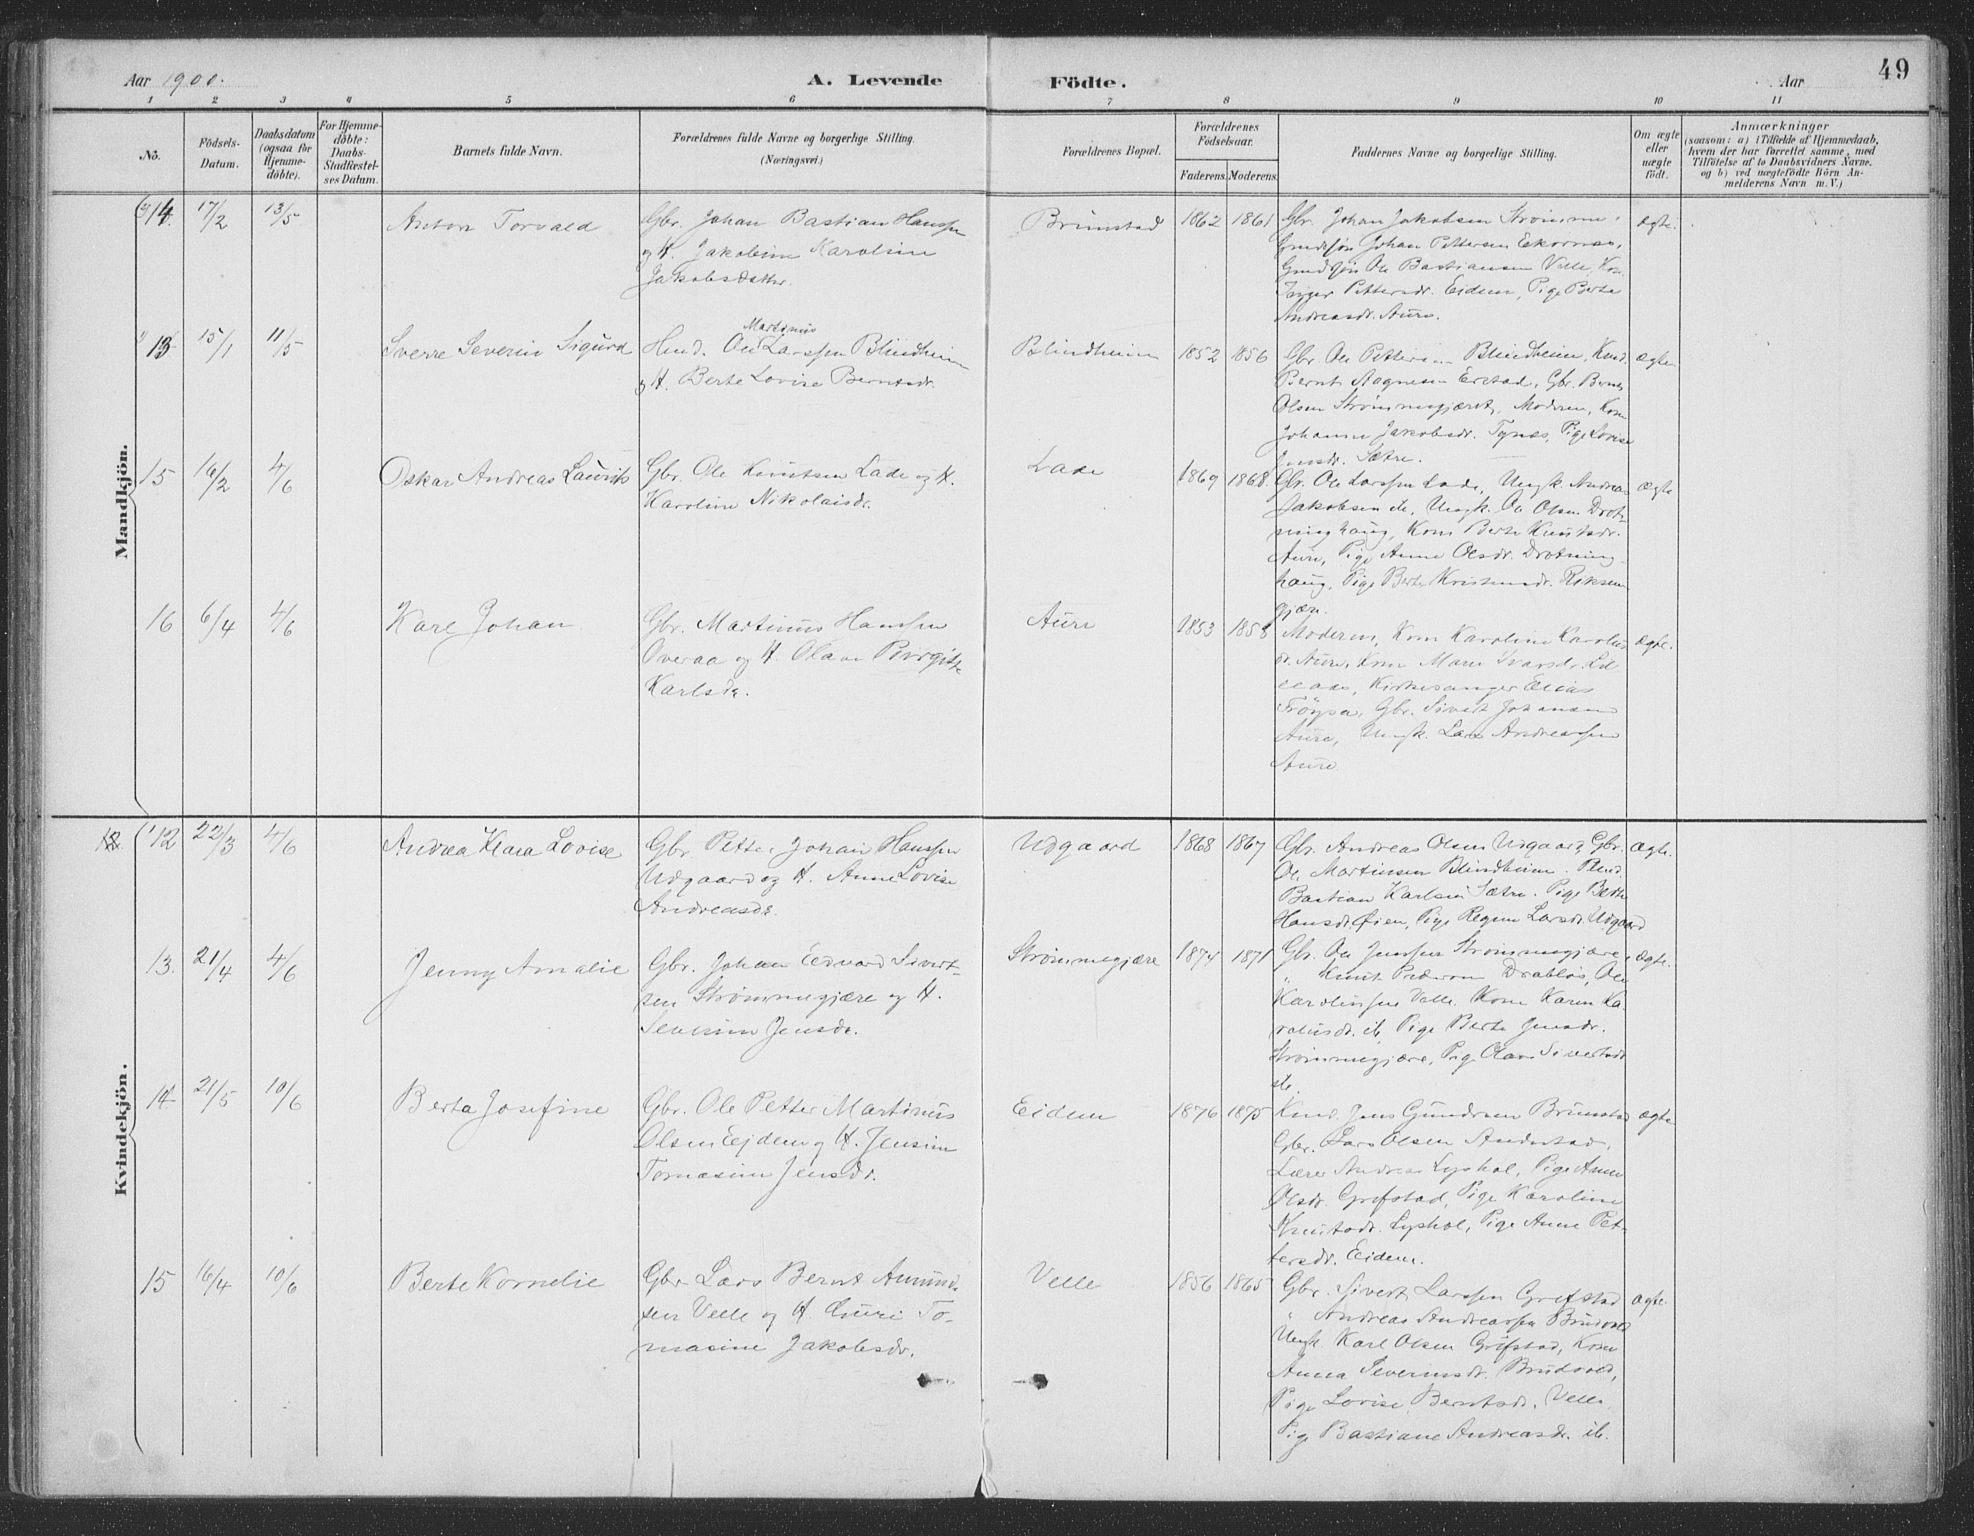 Aar 1900.
A. Levende Födte.
Aar
49
1 2 3 4 5 6 7 8 9 10 11
No.
Födsels-
Datum.
Daabsdatum
(ogsaa for
Hjemme-
döbte).
For Hjemme-
döbte:
Daabs-
Stadfæstel-
ses Datum.
Barnets fulde Navn.
Forældrenes fulde Navne og borgerlige Stilling.
(Næringsvei.)
Forældrenes Bopæl.
Forældrenes
Födselsaar.
Faderens. Moderens.
Faddernes Navne og borgerlige Stilling.
Om ægte
eller
uægte
födt.
Anmærkninger
(saasom: a) i Tilfælde af Hjemmedaab,
hvem der har forrettet samme, med
Tilföielse af to Daabsvidners Navne,
og b) ved uægtefödte Börn An-
melderens Navn m. V.)
Mandkjön.
14. 17/2 13/5
Anton Torvald
Gbr. Johan Bastian Hanssen
og H. Jakobine Karoline
Jakobsdatter.
Brunstad
1862 1861
Gbr. Johan Jakobsen Strömme,
Gmdsjön Johan Pettersen Ekornæs,
Gmdsjön Ole Bastiansen Velle, Kone
Pettersdr. Eidem, Pige Berte
Andreasdr. Aure.
ægte.
13 15/1 11/5
Sverre Severin Sigurd
Martinus
Ole Larssen Blindheim
og H. Berte Lovise Berntsdr.
Blindheim
1852 1856
Gbr. Ole Petters Blindheim,
Bernt Aagnesen Erstad, Gbr. Bernt
Olsen Strømmegjæret, Moderen, Kone
Johanne Jakobsdr. Tynæs, Pige Lovise
Jensdr. Sætre.
ægte
15 16/2 4/6
Oskar Andreas Lauvits
Gbr. Ole Knutsen Lade og H.
Karoline Nikolaisdr.
Lade
1869 1868
Gbr. Ole Larssen Lade, Ungk. Andreas
Jakobsen ib, Ungk. Ole Olsen Drot-
ninghaug, Kone Berte Knutsdr.
Aure, Pige Anne Olsdr. Drotning-
haug, Pige Berte Kristensdr. Riksem-
gjære.
ægte
16 6/4 4/6
Karl Johan
Gbr. Martinus Hanssen
Overaa og H. Olave Birgitte
Karlsdr.
Aure
1853 1858
Moderen, Kone Karoline Karolus-
dr. Aure, Kone Marie Ivarsdr. Lil-
leaas, Kirkesanger Elias
Tröysa, Gbr. Sivert Johansen
Aure, Ungk. Lars Andreassen
Aure
ægte.
Kvindekjön.
12 22/3 4/6
Andrea Klara Lovise
Gbr. Petter Johan Hanssen
Udgaard og H. Anne Lovise
Andreasdr.
Udgaard
1868 1867
Gbr. Andreas Olsen Udgaard, Gbr.
Ole Martinsen Blindheim,
Bastian Karlsen Sætre, Pige Berte
Hansdr. Øien, Pige Regine Larsdr. Udgaard
ægte.
13. 21/4 4/6
Jenny Amalie
Gbr. Johan Edvard Sivert-
sen Strømmegjære og H.
Severine Jensdr.
Strømmegjære
1874 1871
Gbr. Ole Jenssen Strømmegjære,
" Knut Pedersen Drabløs, Ole
Karolinssen Velle. Kone Karen Ka-
rolusdr. ib, Pige Berte Jensdr.
Strømmegjære, Pige Olave Sivertsdr
ib.
ægte.
14 21/5 10/6
Berta Josefine
Gbr. Ole Petter Martinus
Olsen Eidem og H. Jensine
Tomasine Jensdr.
Eidem
1876 1875
Jens Gundersen Brunstad
Gbr. Lars Olsen Andestad,
Lærer Andreas Lyshol, Pige Anne
Olsdr. Grefstad, Pige Karoline
Knutsdr. Lyshol, Pige Anne Pet-
tersdr. Eidem.
ægte
15 16/4 10/6
Berte Kornelie
Gbr. Lars Bernt Amund-
sen Velle og H. Guri To-
masine Jakobsdr.
Velle
1856 1865
Gbr. Sivert Larssen Grefstad
" Andreas Andreassen Brudvold
Ungk. Karl Olsen Grefstad, Kone
Anna Severinsdr. Brudvold,
Pige Lovise Berntsdr. Velle
Pige Bastiane Andreasdr. ib.
ægte.